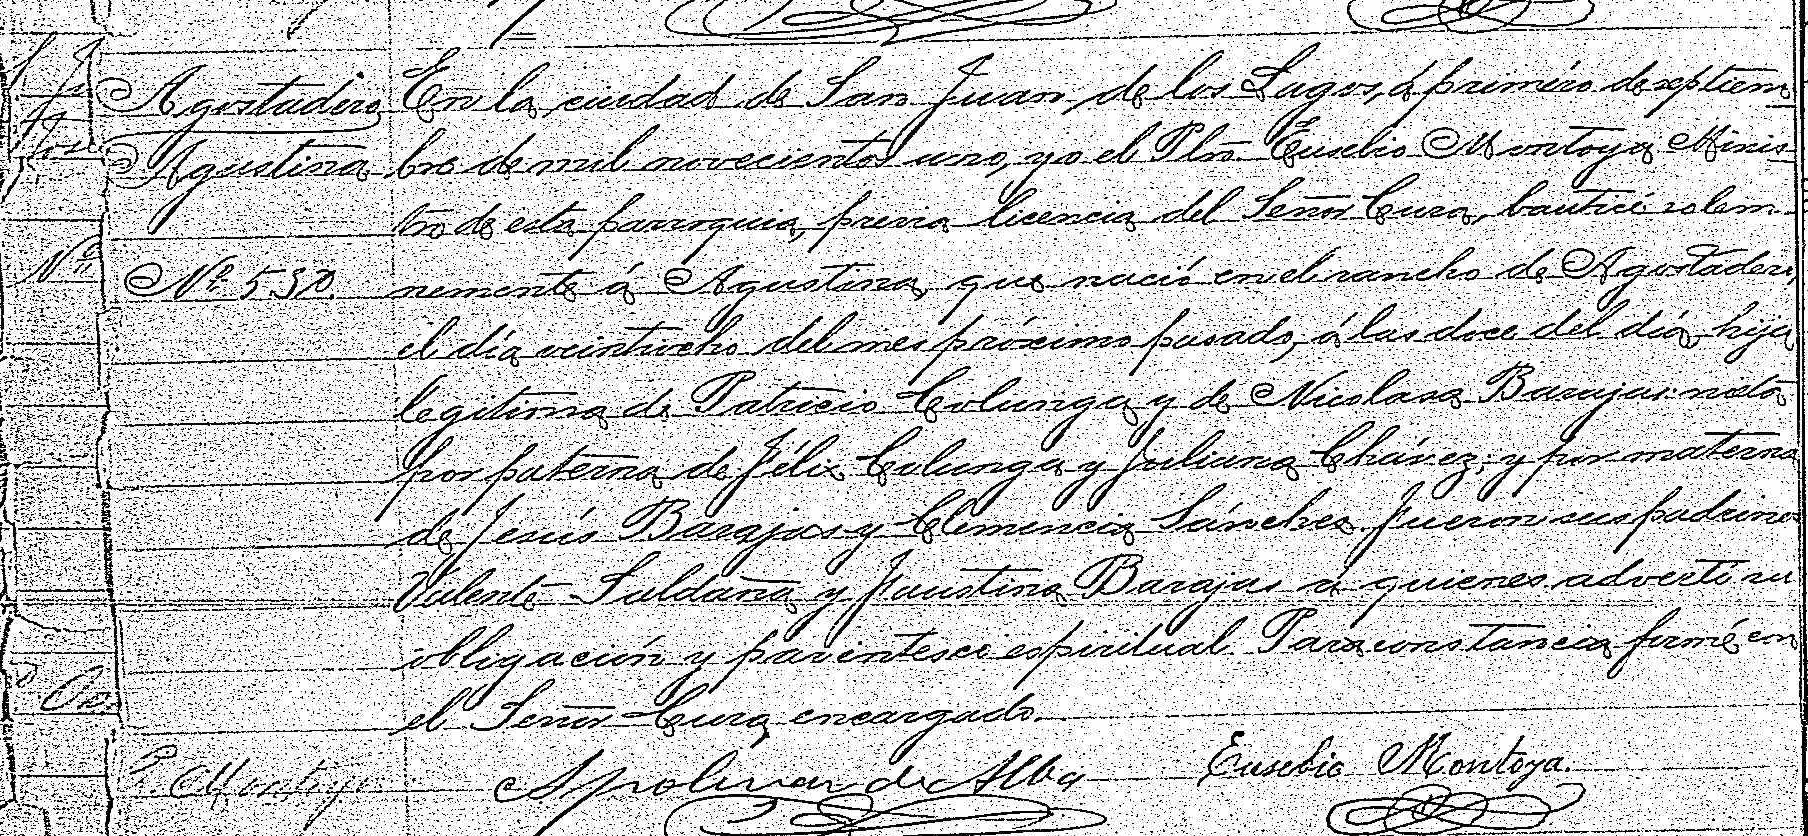 Agostadero
Agustina
Nº 530.
En la ciudad de San Juan de los Lagos, á primero de septiem-
bre de mil novecientos uno, yo el Pbro. Eusebio Montoya Minis-
tro de esta parroquia, previa licencia del Señor Cura, bauticé solem-
nemente á Agustina, que nació en el rancho de Agostadero,
el día veintiocho del mes próximo pasado, á las doce del día, hija
legitima de Patricio Colunga y de Nicolasa Barajas: nieta
por paterna de Félix Colunga y Juliana Chávez; y por materna
de Jesús Barajas y Clemencia Sánchez. Fueron sus padrinos
Valente Saldaña y Faustina Barajas á quienes advertí su
obligación y parentesco espiritual. Para constancia firmé con
el Señor Cura encargado.
E. Montoya
Apolinar de Alba
Eusebio Montoya.